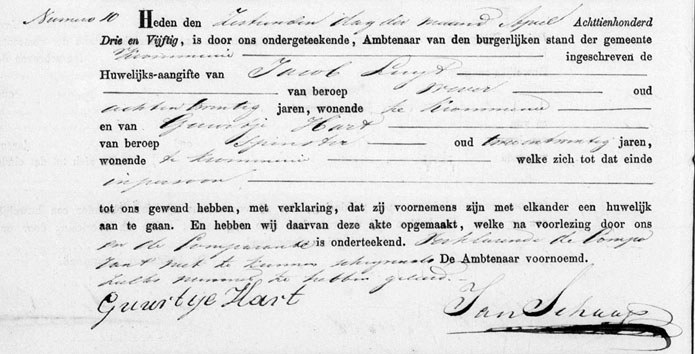 Numero 10 Heden den Zestienden dag der maand April Achttienhonderd
Drie en Vijftig, is door ons ondergeteekende, Ambtenaar van den burgerlijken stand der gemeente
Krommenie ingeschreven de
Huwelijks-aangifte van Jacob Luyt
van beroep wever oud
achtentwintig jaren, wonende te Krommenie
en van Guurtje Hart
van beroep Spinster oud tweeentwintig jaren,
wonende te Krommenie welke zich tot dat einde
in persoon
tot ons gewend hebben, met verklaring, dat zij voornemens zijn met elkander een huwelijk
aan te gaan. En hebben wij daarvan deze akte opgemaakt, welke na voorlezing door ons
en de Comparante is onderteekend. Verklarende de Compa
rant niet te kunnen schrijven als De Ambtenaar voornoemd.
zulks nimmer te hebben geleerd.
Guurtye Hart Jan Schaap